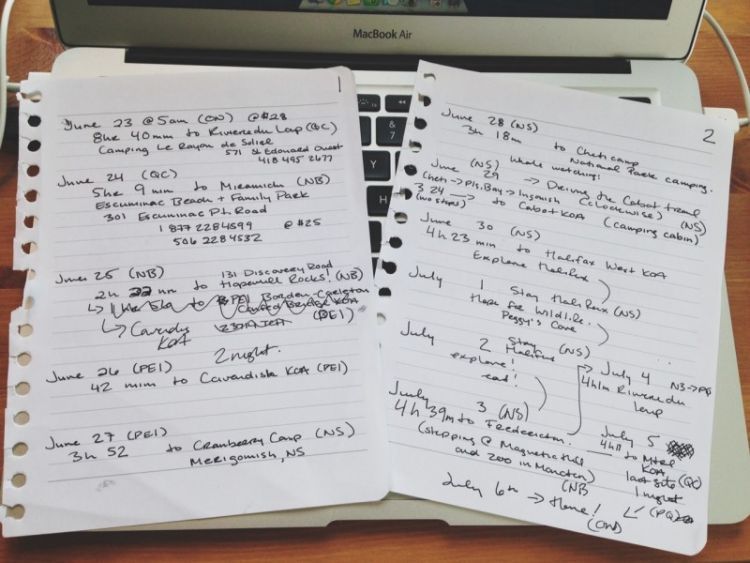 MacBook Air
1
June 23 @ 5am (ON) @ $28
8hr 40 min to Riviere du Loup (QC)
Camping Le Rayon de Soleil
571 St Edouard Ouest
418 495 2677
June 24 (QC)
5hr 9 min to Miramichi (NB)
Escuminac Beach + Family Park
301 Escuminac Pt. Road
1 877 2284599 @ $25
506 2284532
June 25 (NB) 131 Discovery Road
2h 22 min to Hopewell Rocks! (NB)
to PEI Borden-Carleton
KOA
Cavendish (PEI)
KOA
2 night.
June 26 (PEI)
42 mim to Cavandish KOA (PEI)
June 27 (PEI)
3h 52 to Cranberry Camp (NS)
Merigomish, NS
2
June 28 (NS)
3h 18m to Cheticamp
National Park camping.
Whale watching!
June 29 (NS) → Driving the Cabot trail
(Cheti → Pls. Bay → Ingonish (clockwise) (NS)
3 24 → to Cabot KOA (camping cabin)
(no stops)
June 30 (NS)
4h 23 min to Halifax West KOA
Explore Halifax
July 1 Stay Halifax (NS)
Hope for Wildlife.
Peggy's Cove
July 2 Stay Halifax (NS)
explore!
eat!
July 3 (NS)
4h 39m to Fredericton.
(stopping @ Magnetic Hill
and zoo in Moncton)
(NB
July 4 NB → PQ
4h1m Riviere du
Loup
July 5
to Mtrl
KOA
last site (QC)
1 night
(PQ)
July 6th → Home!
(ON)
&
7
Y
H